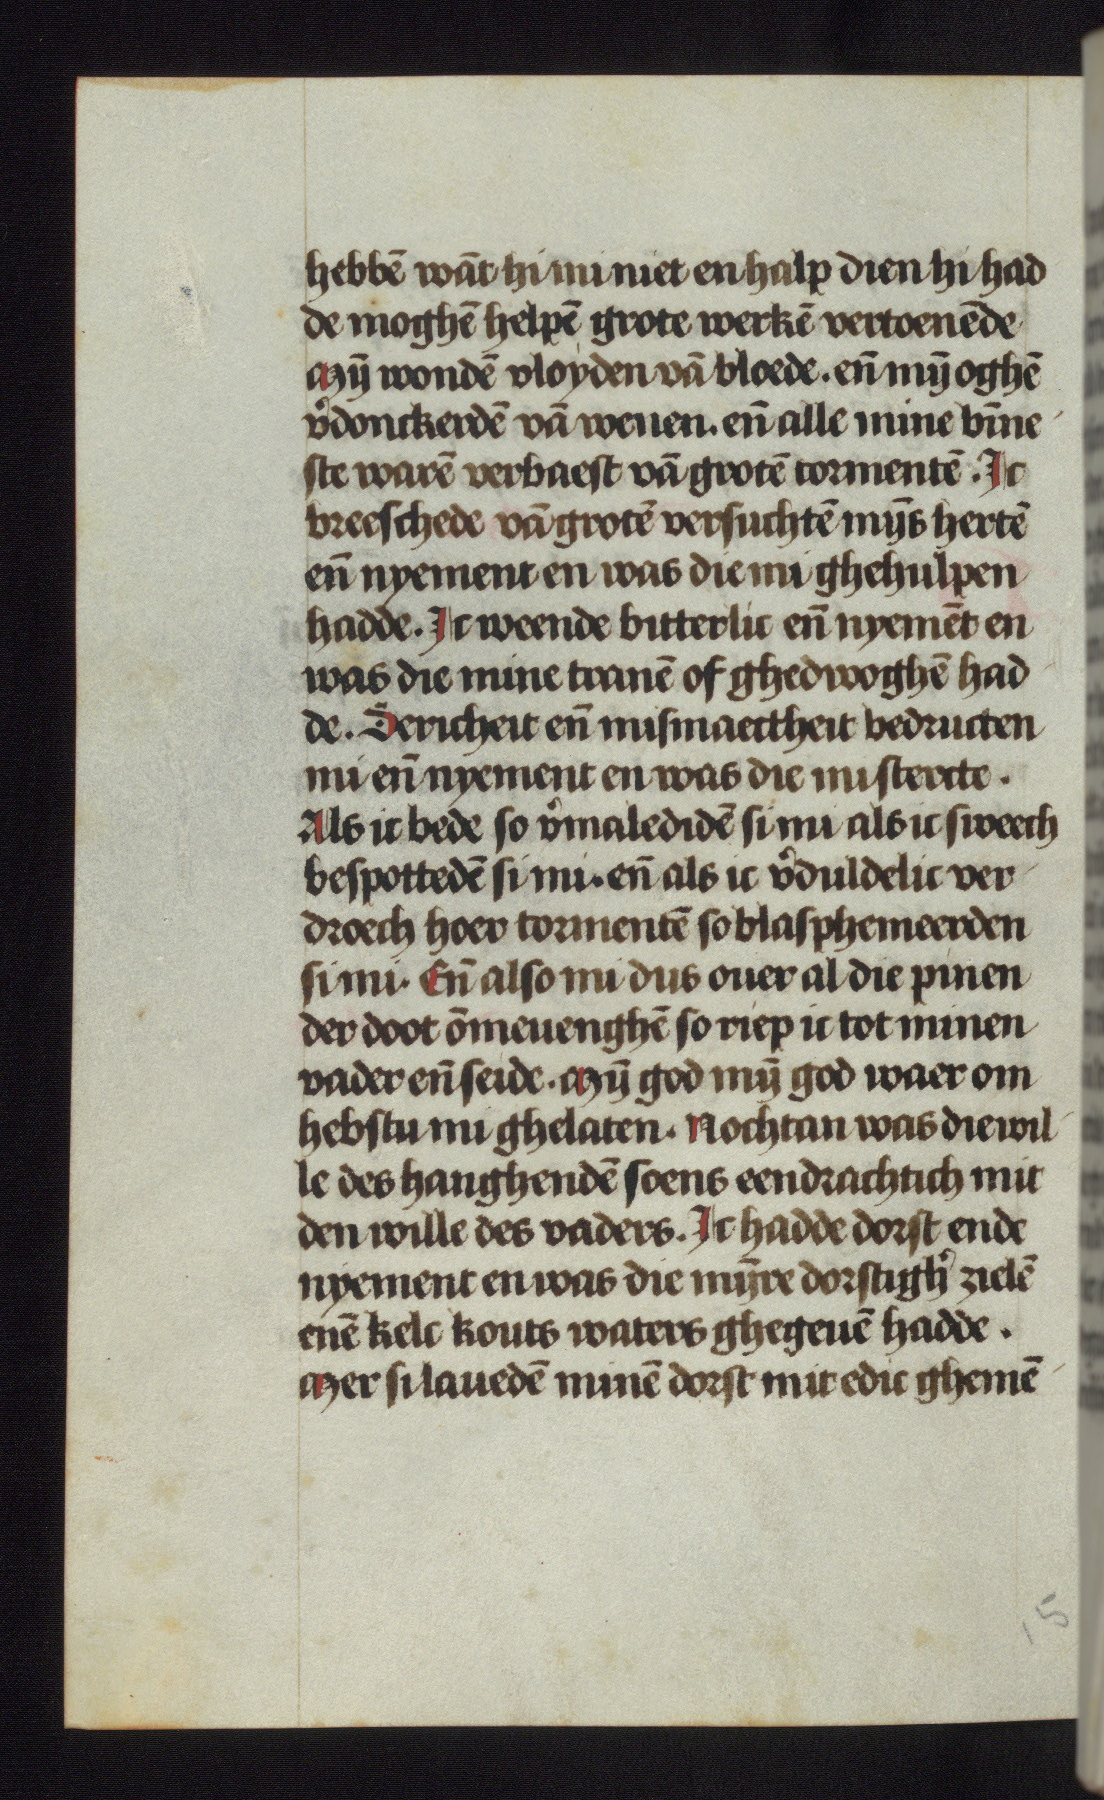 hebbē wāt hi mi niet en halp dien hi had
de moghē helpē grote werkē vertoenēde
Mȳ wondē vloyden vā bloede. en̄ mȳ oghē
v̓donckerdē vā wenen. en̄ alle mine bīne
ste warē verbaest vā grotē tormentē. Ic
breeschede vā grotē versuchtē mȳs hertē
en̄ nyement en was die mi ghehulpen
hadde. Ic weende bitterlic en̄ nyemēt en
was die mine tranē of ghedwoghē had
de. Sericheit en̄ mismaectheit bedructen
mi en̄ nyement en was die mi stercte.
Als ic bede so v̓maledidē si mi als ic sweech
bespottedē si mi. en̄ als ic v̓duldelic ver
droech hoer tormentē so blasphemeerden
si mi. En̄ also mi dus ouer al die pinen
der doot ōmeuenghē so riep ic tot minen
vader en̄ seide. Mȳ god mȳ god waer om
hebstu mi ghelaten. Nochtan was die wil
le des hanghendē soens eendrachtich mit
den wille des vaders. Ic hadde dorst ende
nyement en was die mȳre dorstigh̓ zielē
enē kelc kouts waters ghegeuē hadde.
Mer si lauedē minē dorst mit edic ghemē
15